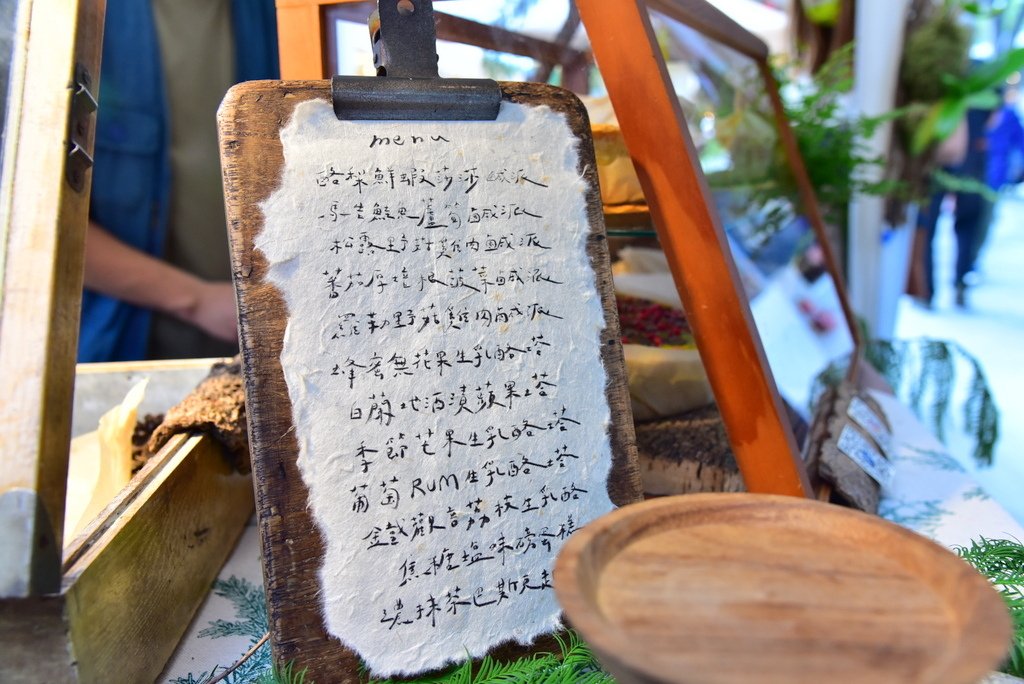 menu
酪梨鮮蝦莎莎鹹派
鮭魚蘆筍鹹派
松露野菇雞肉鹹派
蕃茄厚培根菠菜鹹派
羅勒野菇雞肉鹹派
蜂蜜無花果生乳酪塔
白蘭地酒漬蘋果塔
季節芒果生乳酪塔
葡萄RUM生乳酪塔
鐵觀音荔枝生乳酪
焦糖塩味磅蛋糕
濃抹茶巴斯克